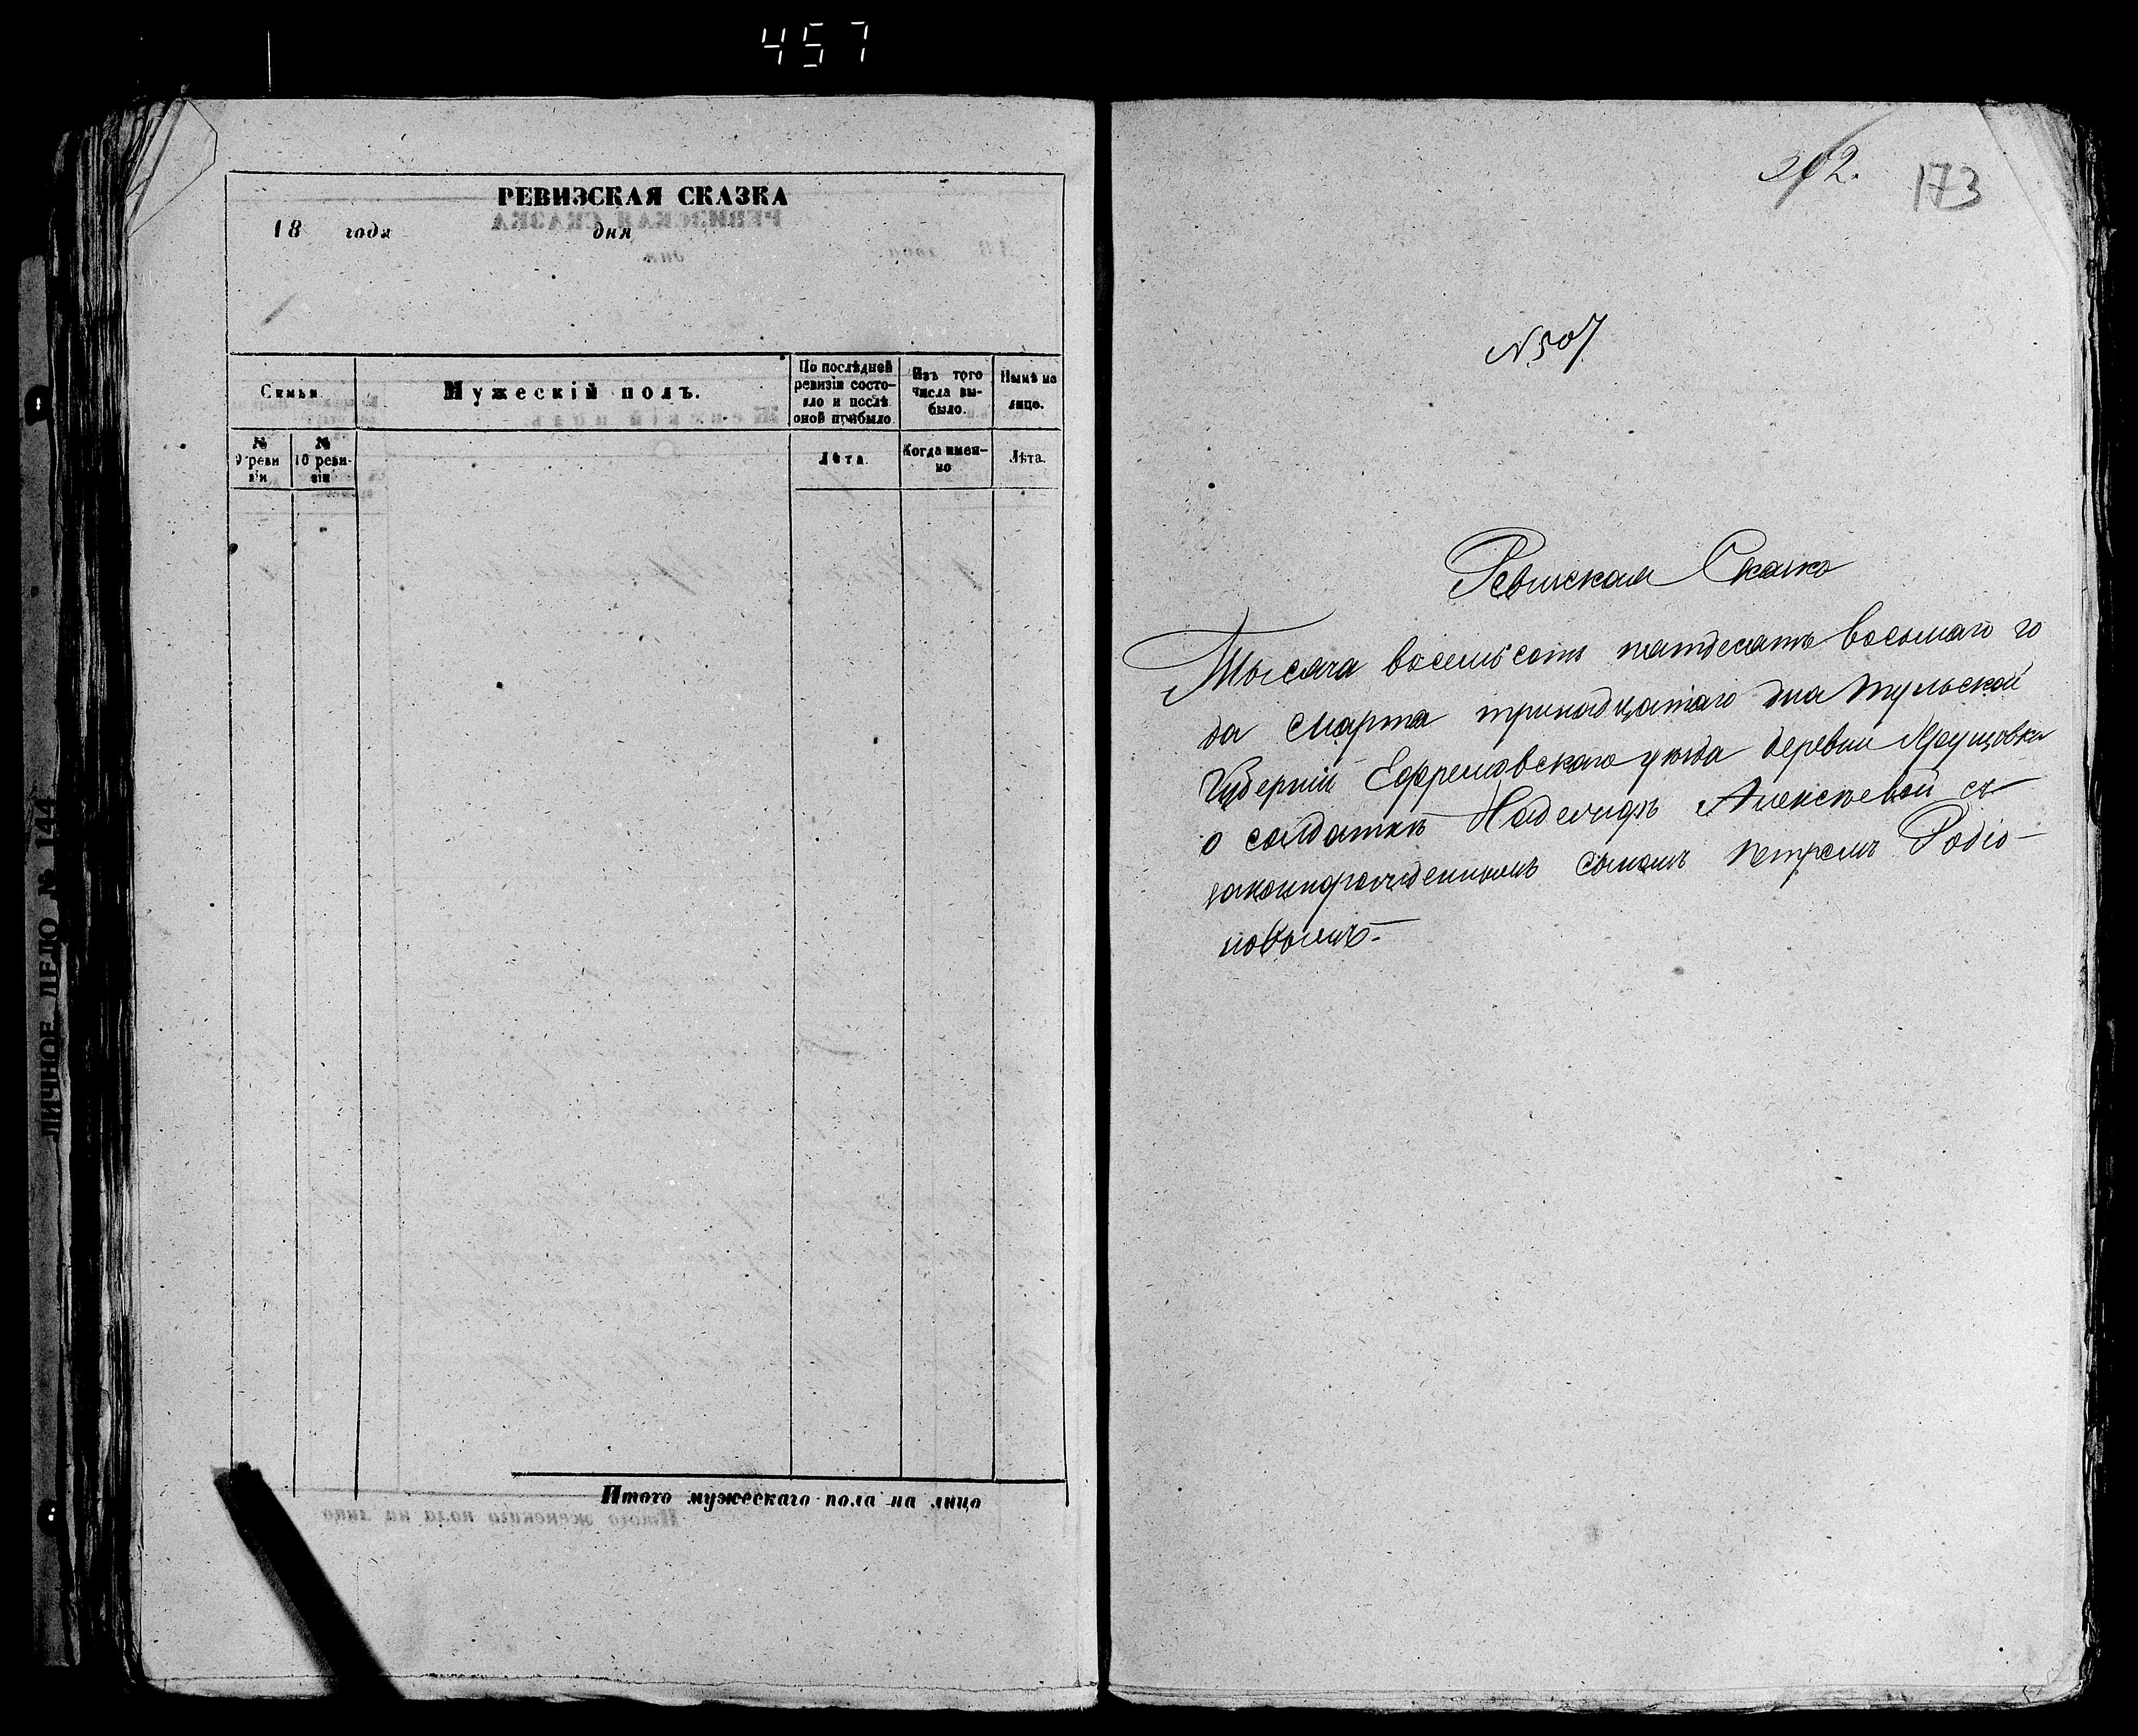 457
РЕВИЗСКАЯ СКАЗКА
18 года дня
Семьи.
Мужескій полъ.
По послѣдней ревизіи состояло и послѣ оной прибыло.
Изъ того числа выбыло.
Нынѣ на лицо.
№ 9 ревизіи
№ 10 ревизіи
Лѣта.
Когда именно
Лѣта.
Итого мужескаго пола на лицо
ЛИЧНОЕ ДЕЛО № 144
173
N 507
Ревизская Сказка
Тысяча восемьсотъ пятдесятъ восьмаго го
да Марта тринадцатаго дня Тульской
Губерніи Ефремовскаго уѣзда деревни Хрущовки
о солдаткѣ Надеждѣ Алексѣевой съ
законнорожденнымъ сыномъ Петромъ Родіо-
новымъ.-